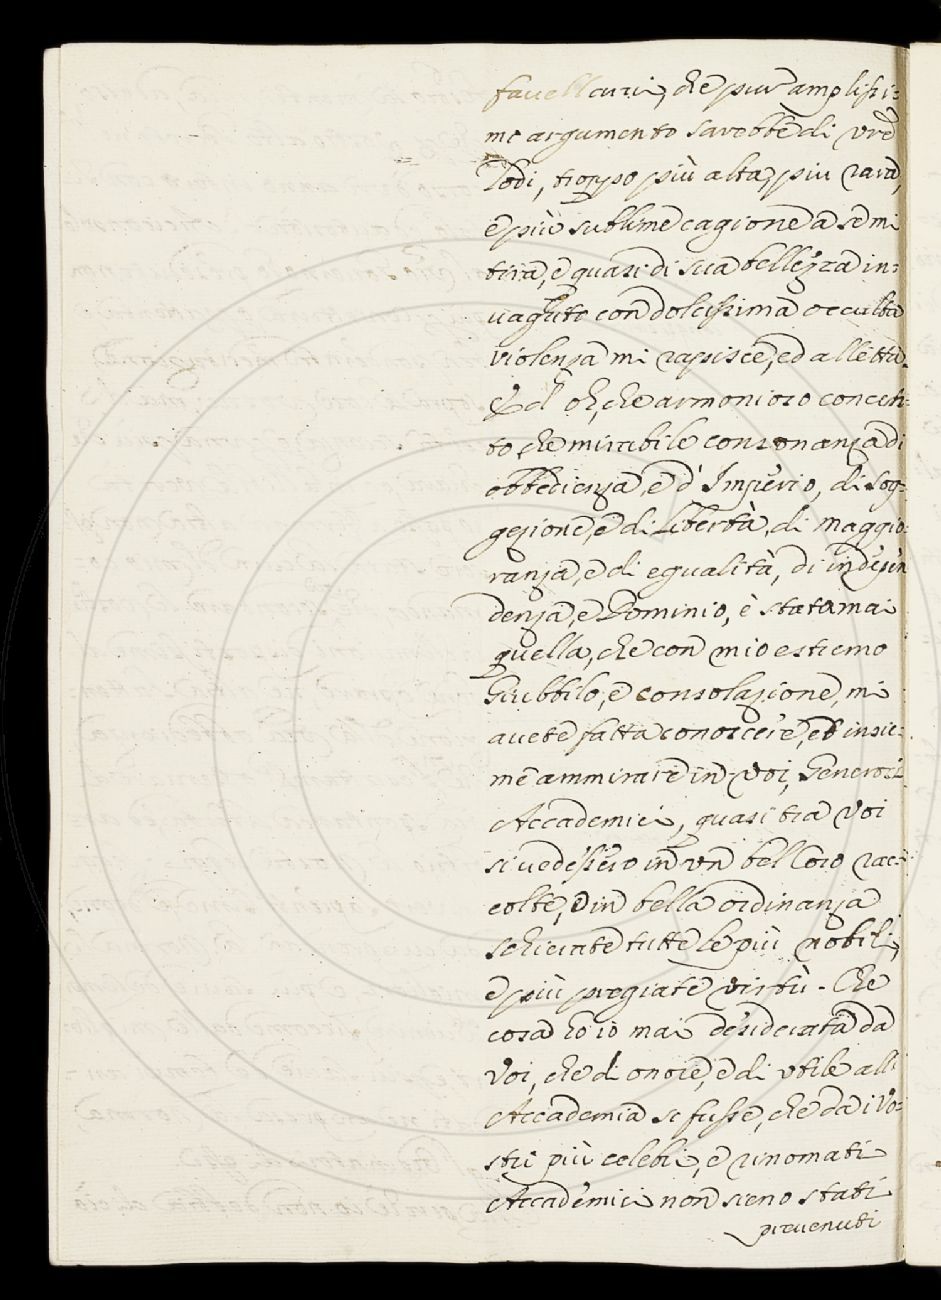 favellarvi, che pur amplissi=
mo argumento sarebbe di vre
Lodi, troppo più alta, piu rara,
e più sublime cagione a se mi
tira, e quasi di sua bellezza in=
vaghito con dolcissima occulta
violenza mi rapisce, ed alletta.
Ed oh, che armonioso concen=
to, che mirabile consonanza di
obbedienza, e d'Imperio, di sog=
gezione, e di Libertà, di maggio=
ranza, e di egualità, di indepen
denza, e Dominio, è stata mai
quella, che con mio estremo
Giubbilo, e consolazione, mi
avete fatta conoscere, ed insie=
me ammirare in voi, Generosi
Accademici, quasi tra voi
si vedessero in un bel Coro rac=
colte, o in bella ordinanza
schierate tutte le più nobili,
e più pregiate virtù. Che
cosa ho io mai desiderata da
Voi, che di onore, e di utile all'
Accademia si fusse, che da i Vo=
stri più celebri, e rinomati
Accademici non sieno stati
prevenuti